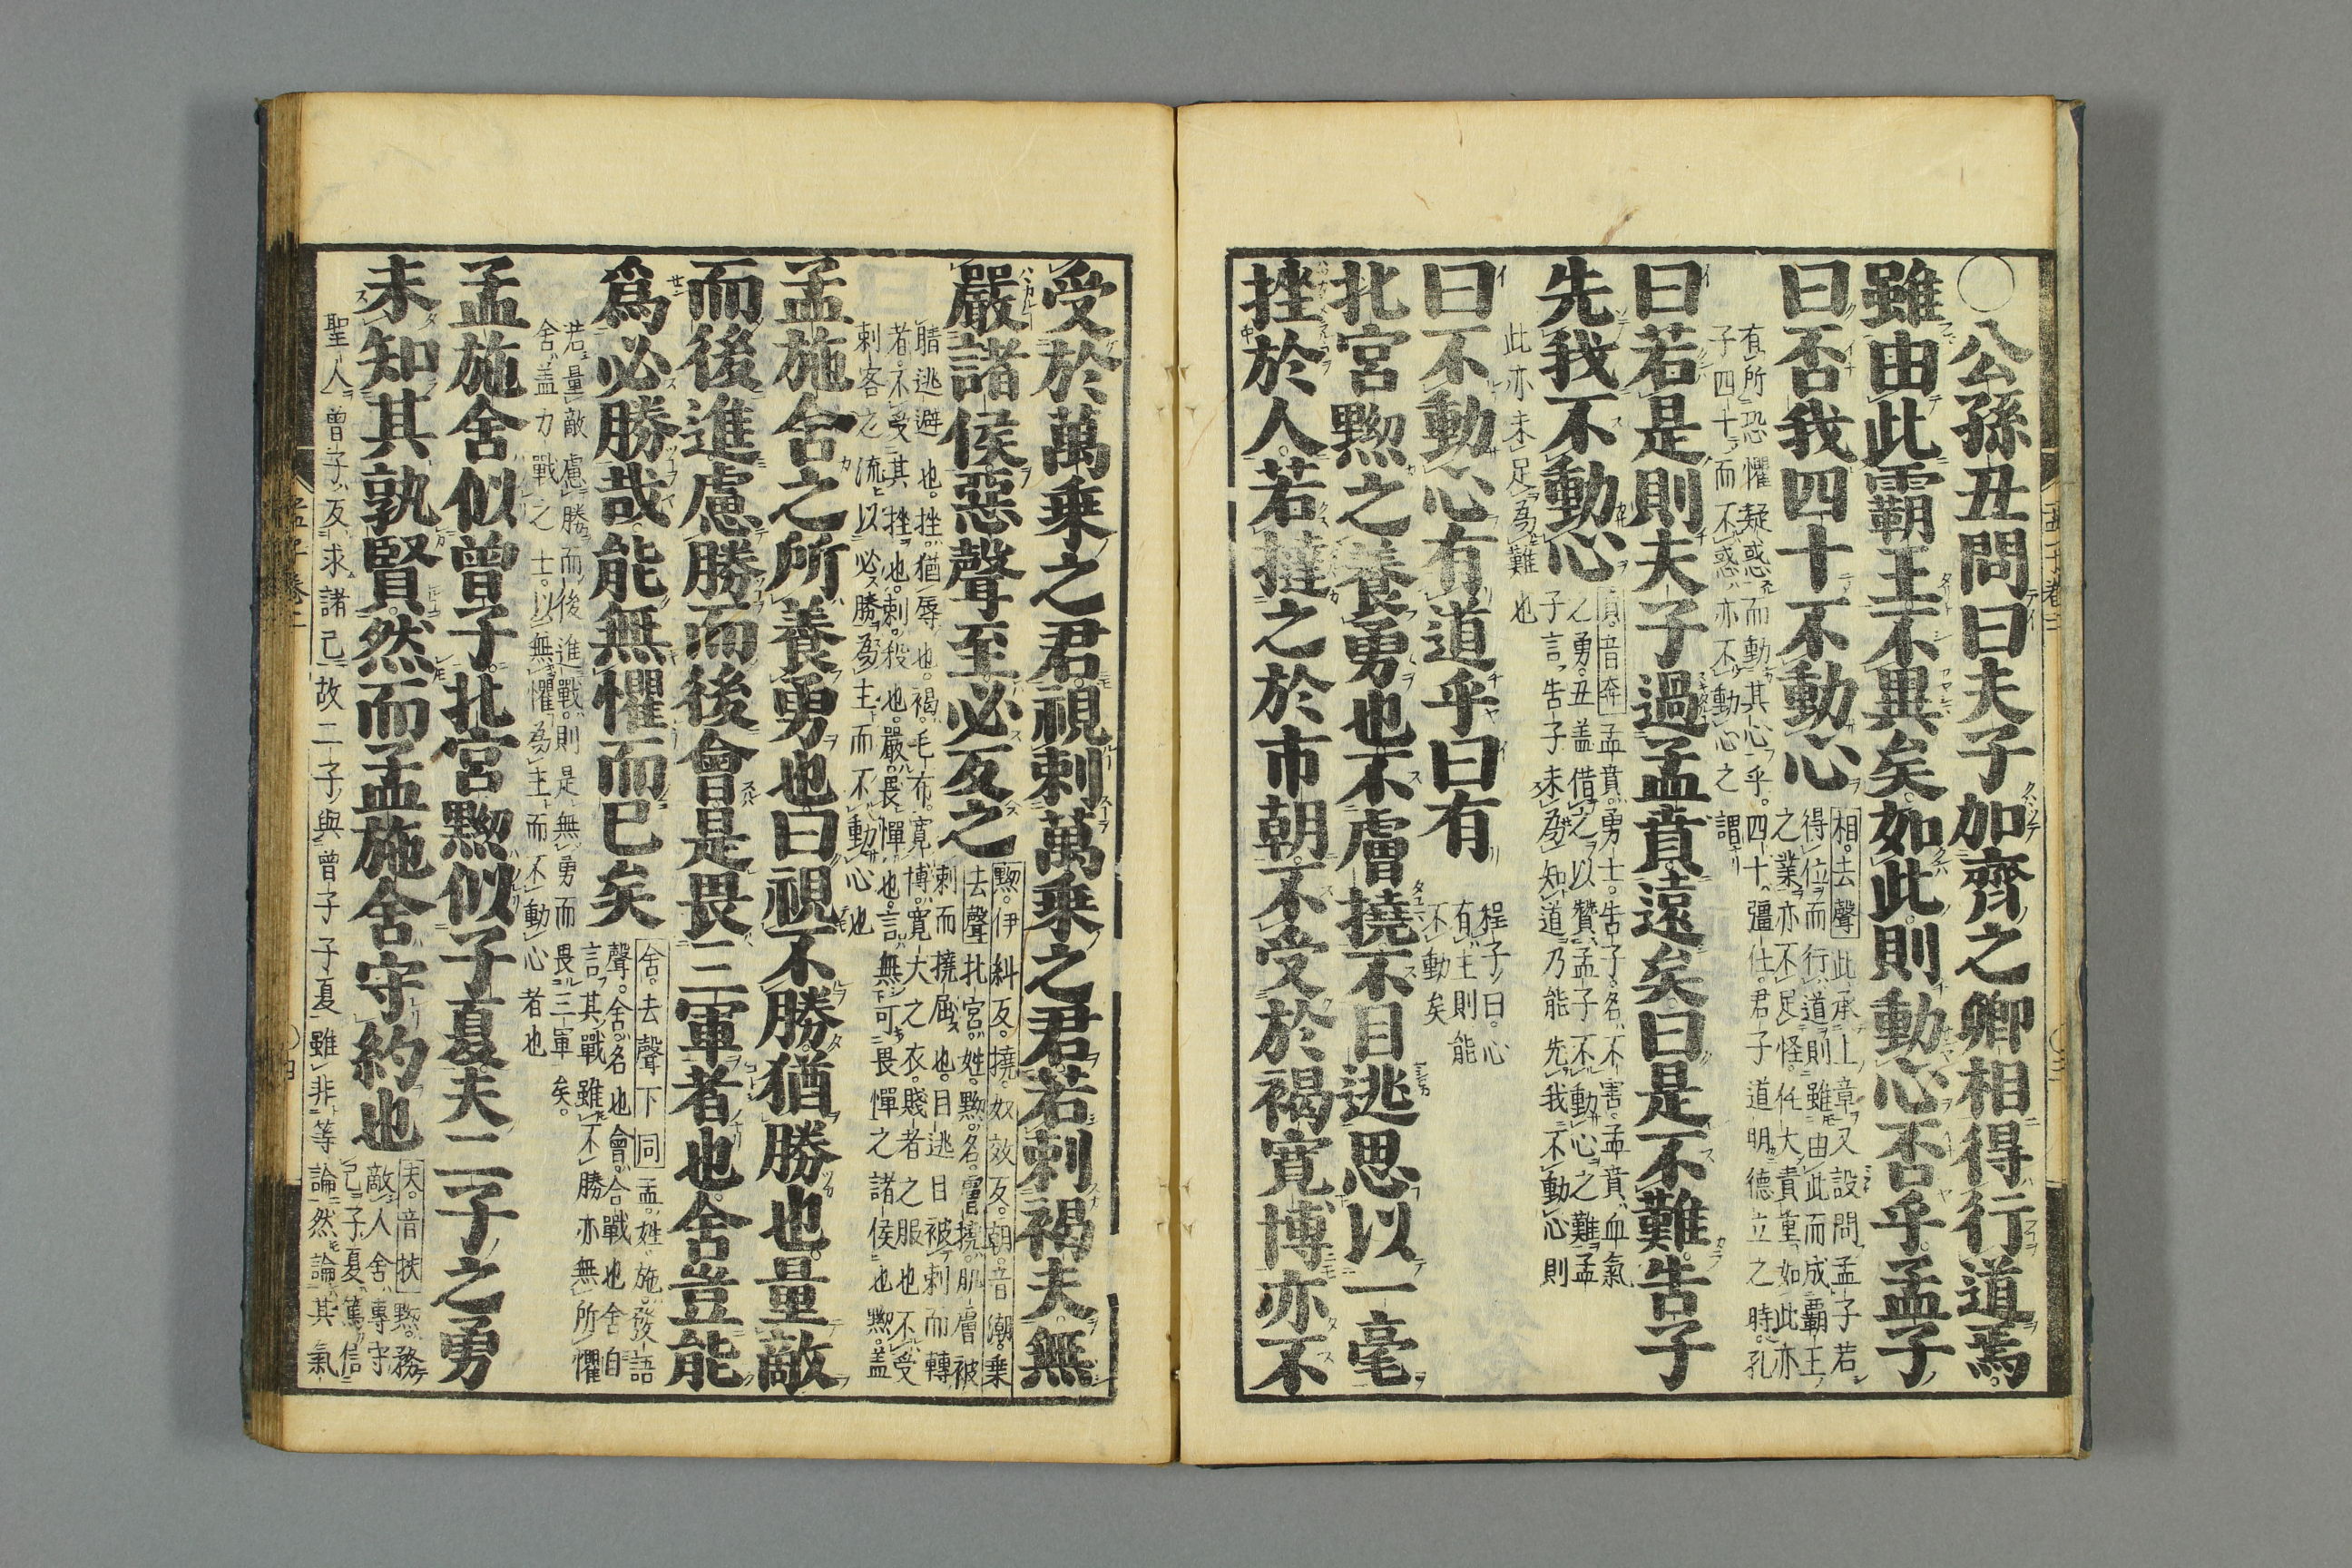 ○公孫丑問曰夫子加齊之卿相得行道焉。
雖由此霸王不異矣。如此。則動心否乎。孟子
曰否我四十不動心
相。去聲 此承上章又設問孟子若
得位而行道則雖由此而成霸王
之業亦不足怪。任大責重如此亦
有所恐懼疑惑而動其心乎。四十。彊仕。君子道明德立之時。孔
子四十而不惑亦不動心之謂
曰若是則夫子過孟賁遠矣。曰是不難。告子
先我不動心
賁。音奔 孟賁。勇士。告子。名不害。孟賁血氣
之勇。丑蓋借之以贊孟子不動心之難。孟
子言。告子未爲知道乃能先我不動心則
此亦未足爲難也
曰不動心有道乎曰有
程子曰。心
有主則能
不動矣
北宮黝之養勇也不膚撓不目逃思以一毫
挫於人。若撻之於市朝。不受於褐寬博亦不
受於萬乗之君。視刺萬乗之君。若刺褐夫無
嚴諸侯。惡聲至。必反之
黝。伊糾反。撓。奴效反。朝。音潮。乗
去聲 北宮姓。黝名。膚撓。肌膚被
刺而撓屈也。目逃目被刺而轉
睛逃避也。挫猶辱也。褐。毛布。寬博。寬大之衣。賤者之服也不受
者。不受其挫也。刺。殺也。嚴畏憚也。言無可畏憚之諸侯也黝。蓋
刺客之流以必勝爲主而不動心也
孟施舍之所養勇也曰視不勝。猶勝也。量敵
而後進慮勝而後會是畏三軍者也。舍豈能
爲必勝哉。能無懼而已矣
舍。去聲下同 孟。姓。施。發語
聲。舍。名也會。合戰也舍自
言其戰雖不勝亦無所懼
若量敵慮勝而後進戰。則是無勇而畏三軍矣。
舍蓋力戰之士。以無懼爲主而不動心者也
孟施舍似曾子。北宮黝似子夏夫二子之勇
未知其孰賢。然而孟施舍守約也
夫。音扶 黝。務
敵人舍專守
己子夏篤信
聖人曾子反求諸己故二子與曾子子夏雖非等論然論其氣